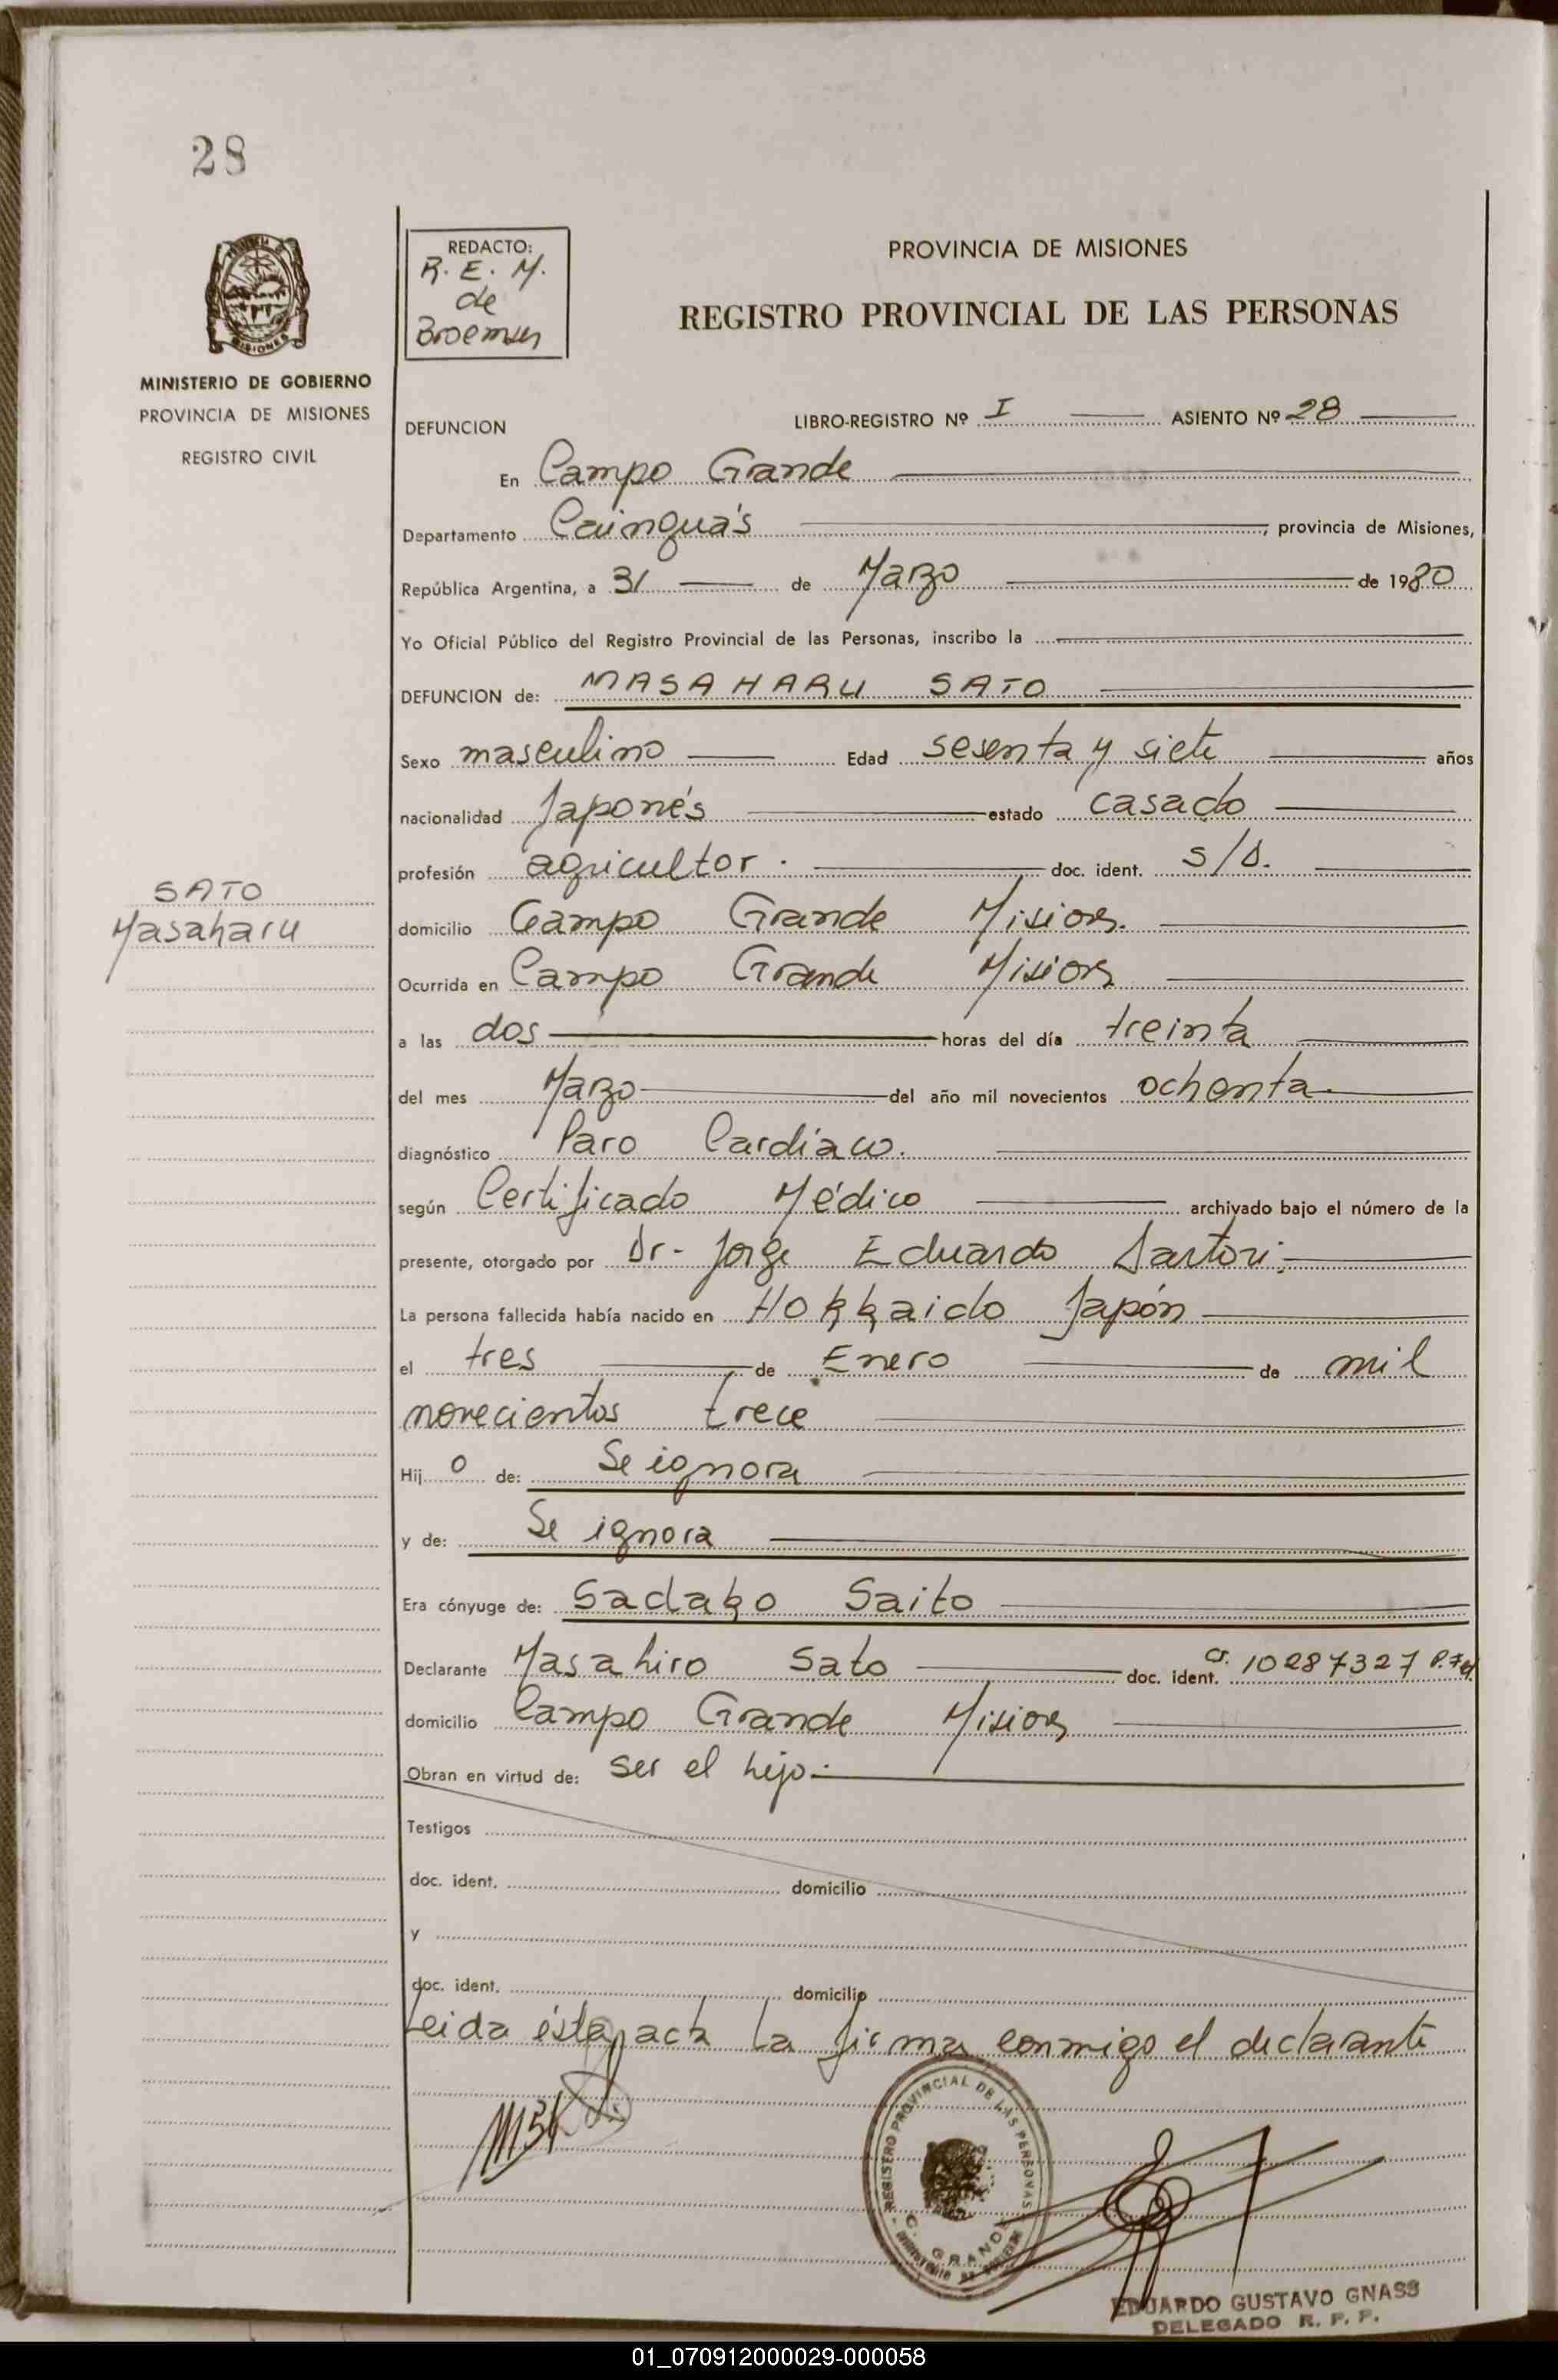 28
REDACTO:
R. E. M.
de
MISIONES
MINISTERIO DE GOBIERNO
PROVINCIA DE MISIONES
REGISTRO CIVIL
PROVINCIA DE MISIONES
REGISTRO PROVINCIAL DE LAS PERSONAS
DEFUNCION LIBRO-REGISTRO Nº I ASIENTO Nº 28
En Campo Grande
Departamento Cainguás, provincia de Misiones,
República Argentina, a 31 de Marzo de 1980
Yo Oficial Público del Registro Provincial de las Personas, inscribo la
DEFUNCION de: MASAHARU SATO
Sexo masculino Edad sesenta y siete años
nacionalidad Japonés estado casado
profesión agricultor. doc. ident. S/D.
SATO
Masaharu
domicilio Campo Grande Misiones.
Ocurrida en Campo Grande Misiones
a las dos horas del día treinta
del mes Marzo del año mil novecientos ochenta
diagnóstico Paro Cardíaco.
según Certificado Médico archivado bajo el número de la
presente, otorgado por Dr. Jorge Eduardo Sartori.
La persona fallecida había nacido en Hokkaido Japón
el tres de Enero de mil
novecientos trece
Hijo de: Se ignora
y de: Se ignora
Era cónyuge de: Sadako Saito
Declarante Masahiro Sato doc. ident. 10287327
domicilio Campo Grande Misiones
Obran en virtud de: ser el hijo.
Testigos
doc. ident. domicilio
y
doc. ident. domicilio
Leida ésta acta la firma conmigo el declarante
REGISTRO PROVINCIAL DE LAS PERSONAS
C. GRANDE
EDUARDO GUSTAVO GNASS
DELEGADO R. P. P.
01_070912000029-000058